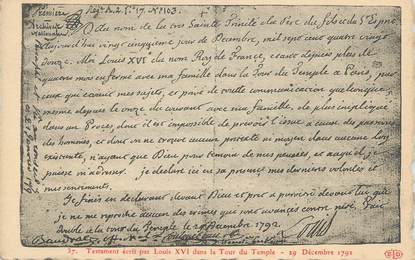 Première
Régtre 2. Lse 17. No 103.
Archives
nationales
Au nom de la tres Sainte Trinité du Pere du Fils et du St Esprit
aujourd'hui vingt cinquieme jour de Decembre, mil sept cent quatre vingt
douze. Moi Louis XVI du nom Roy de France, etant depuis plus de
quatres mois enfermé avec ma famille dans la Tour du Temple a Paris, par
ceux qui etaient mes sujets, et privé de toutte communication quelconque,
meme depuis le onze du courant avec ma famille, de plus impliqué
dans un Proces dont il est impossible de prevoir l'issue a cause des passions
des hommes, et dont on ne trouve aucun pretexte ni moyen dans aucune Loy
existante, n'ayant que Dieu pour temoin de mes pensées, et auquel je
puisse m'adresser. je declare ici en sa presence mes dernieres volontés et
mes sentiments.
Je finis en declarant devant Dieu et pret a paroitre devant lui que
je ne me reproche aucun des crimes qui sont avancés contre moi. Fait
double a la tour du Temple le 25 Decembre 1792.
Louis
Baudrais
37. Testament écrit par Louis XVI dans la Tour du Temple - 29 Décembre 1792
ELD